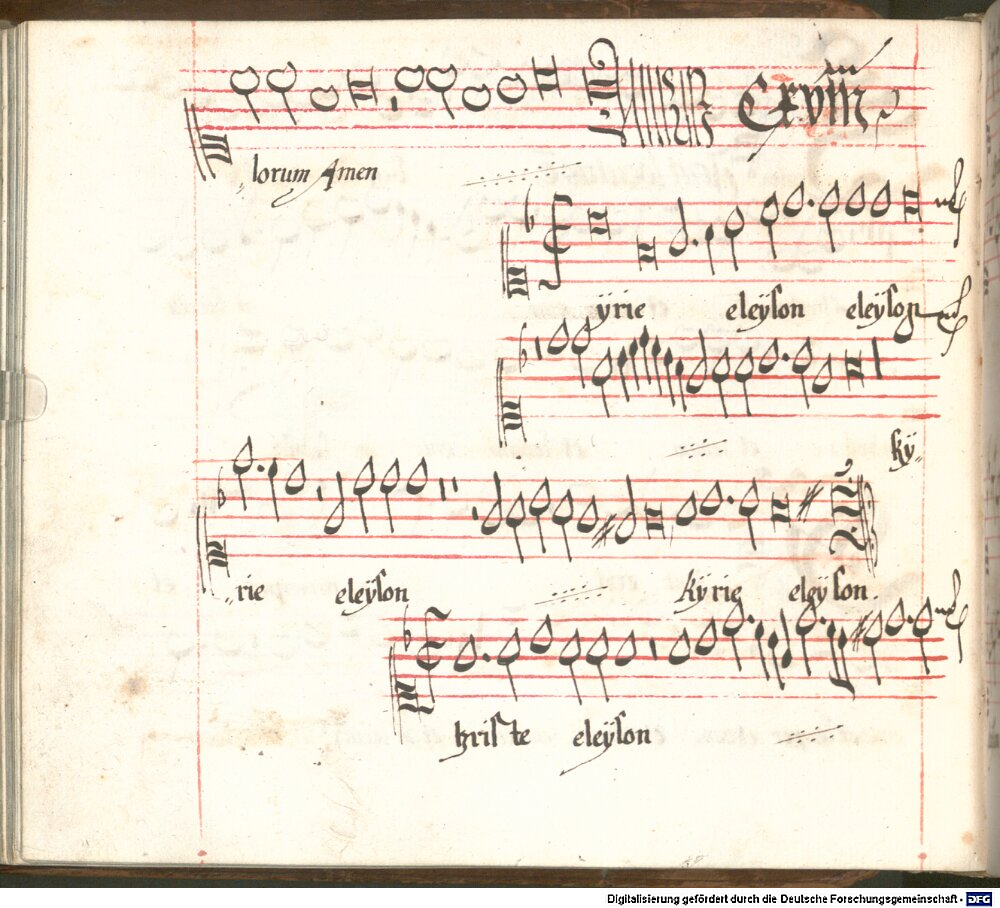 Cxviij
lorum Amen
ÿrie eleÿson eleÿson
kÿ
rie eleÿson kÿrie eleyson.
hriste eleÿson
Digitalisierung gefördert durch die Deutsche Forschungsgemeinschaft - DFG